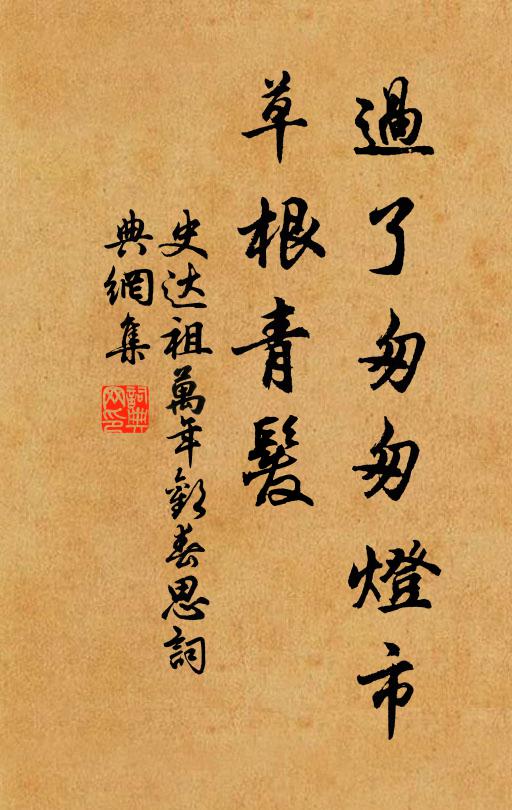 過了匆匆燈市
草根青髮
史达祖萬年歡春思詞
典網集
詞典
网印